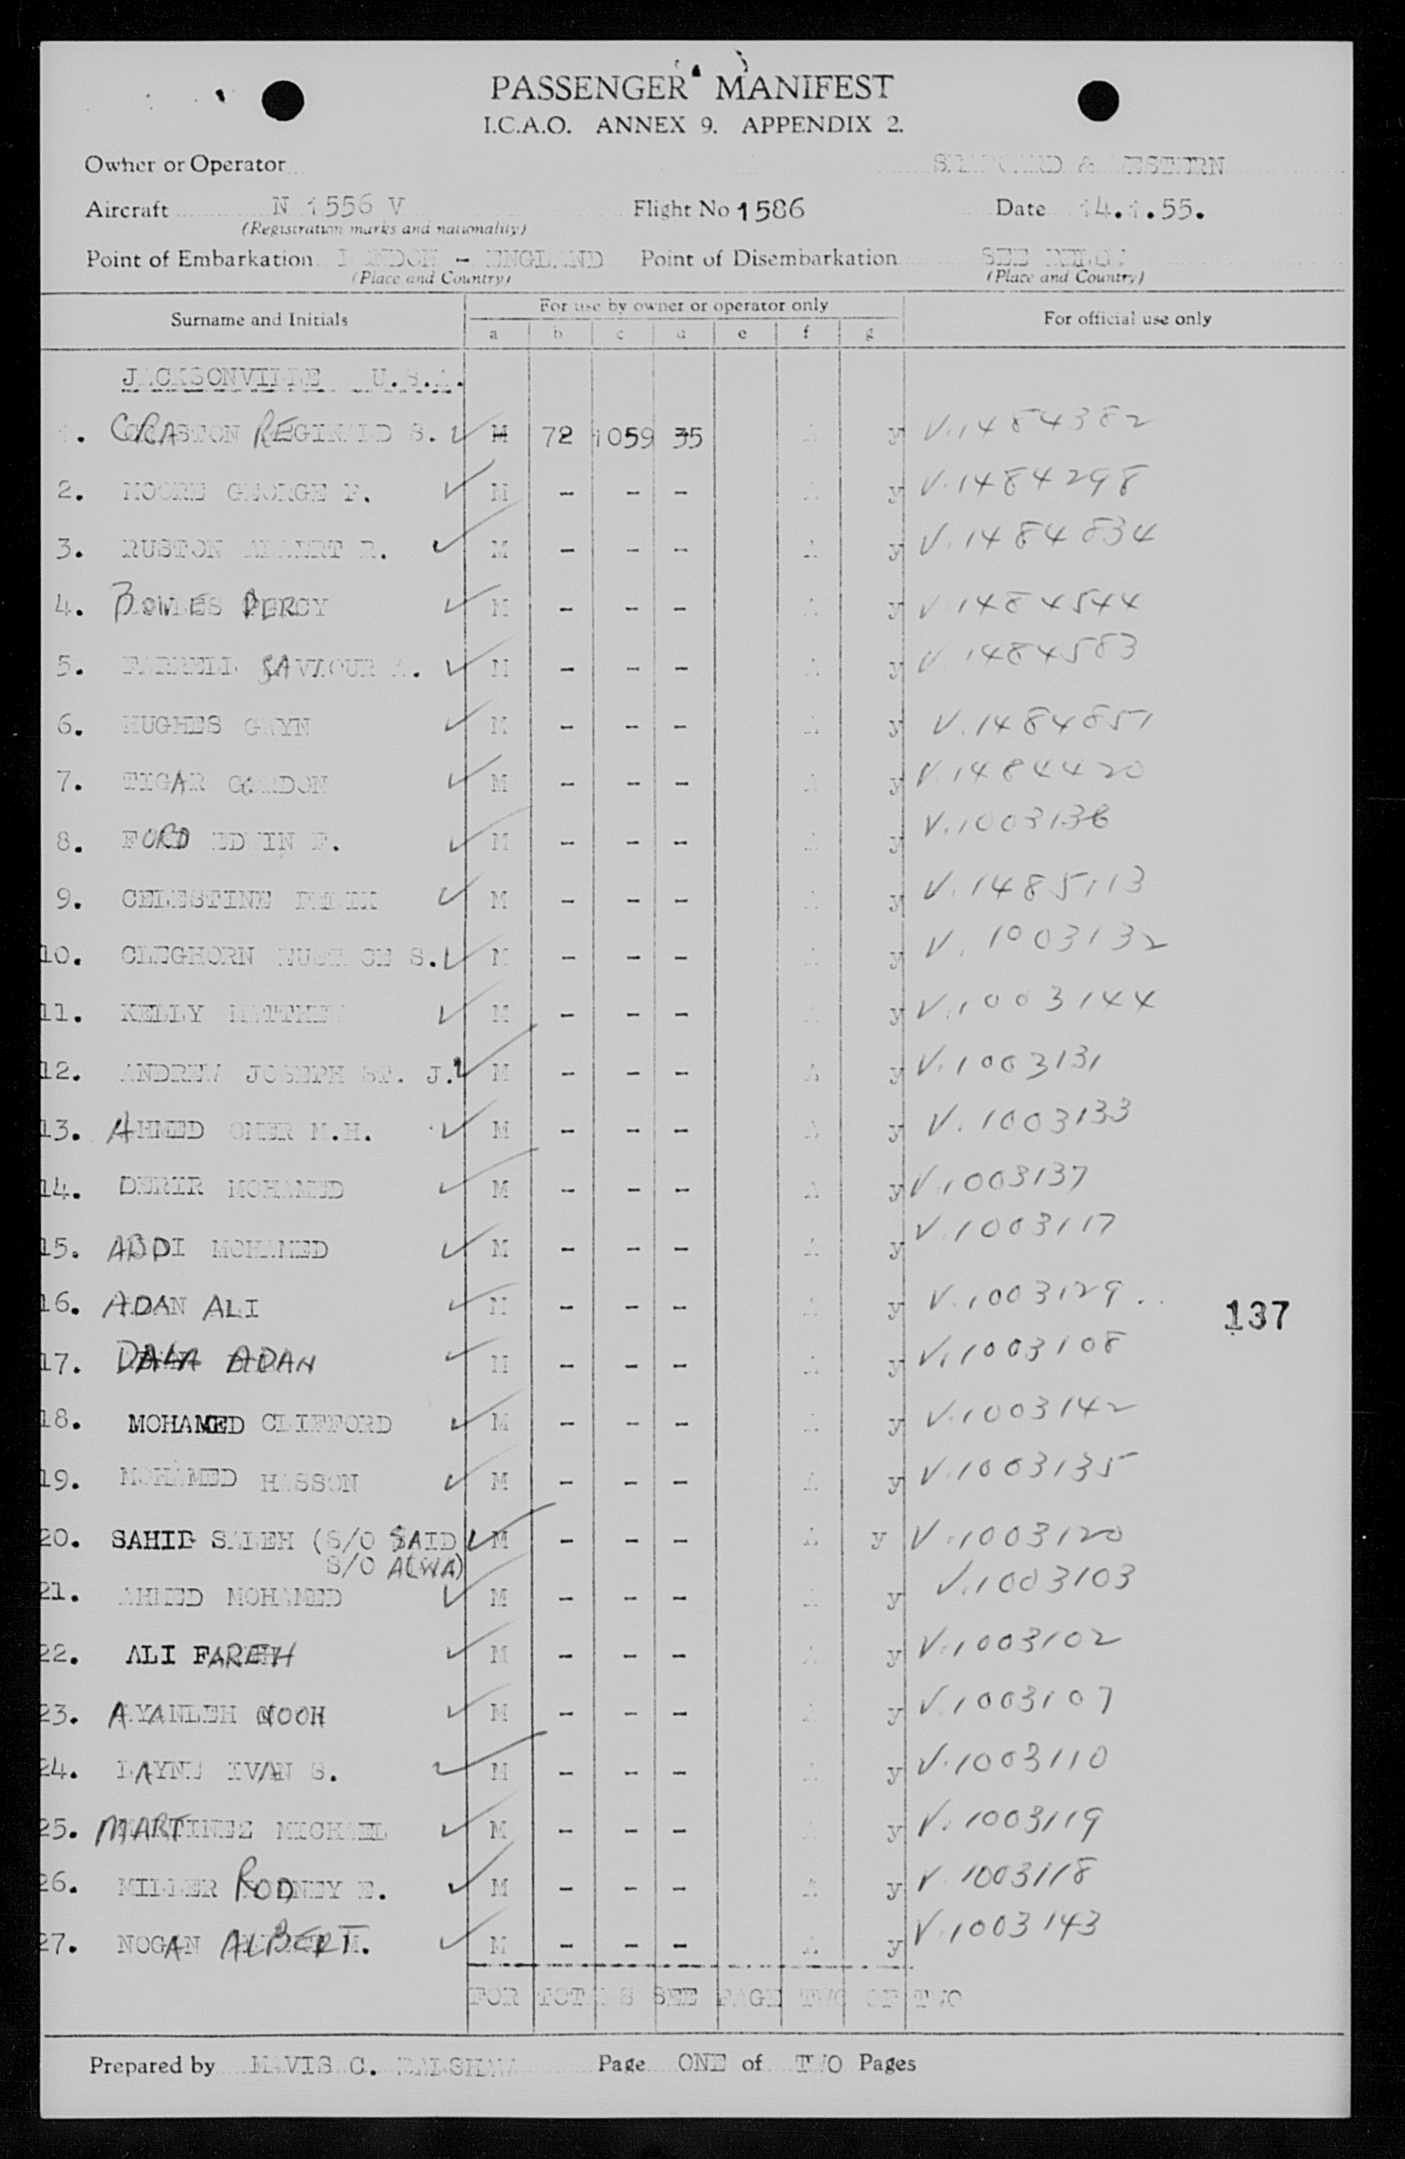 PASSENGER MANIFEST
I.C.A.O. ANNEX 9. APPENDIX 2.
Owner or Operator & WESTERN
Aircraft N 1556 V Flight No 1586 Date 14.1.55.
(Registration marks and nationality)
Point of Embarkation LONDON - ENGLAND Point of Disembarkation SEE BELOW
(Place and Country) (Place and Country)
Surname and Initials For use by owner or operator only For official use only
a b c d e f g
JACKSONVILLE U.S.A.
1. CRASTON REGINALD S. M 72 1059 35 A y V.1484382
2. MOORE GEORGE F. M - - - A y V.1484298
3. RUSTON ALBERT R. M - - - A y V.1484834
4. BOWLES PERCY M - - - A y V 1484544
5. FARRELL SAVIOUR M - - - A y V 1484583
6. HUGHES GWYN M - - - A y V.1484851
7. TIGAR GORDON M - - - A y V.1484420
8. FORD EDWIN F. M - - - A y V.1003136
9. CELESTINE M - - - A y V.1485113
10. CLEGHORN S. M - - - A y V.1003132
11. KELLY MATTHEW M - - - A y V.1003144
12. ANDREW JOSEPH ST. J. M - - - A y V.1003131
13. AHMED OMER M.H. M - - - A y V.1003133
14. DERIR MOHAMED M - - - A y V.1003137
15. ABDI MOHAMED M - - - A y V.1003117
16. ADAN ALI M - - - A y V.1003129.
137
17. DALA ADAN M - - - A y V.1003108
18. MOHAMED CLIFFORD M - - - A y V.1003142
19. MOHAMED HASSON M - - - A y V.1003135
20. SAHIB SALEH (S/O SAID M - - - A y V.1003120
S/O ALWA)
21. AHMED MOHAMED M - - - A y V.1003103
22. ALI FARAH M - - - A y V.1003102
23. AYANLEH NOOH M - - - A y V.1003107
24. LAYNE IVAN S. M - - - A y V.1003110
25. MARTINEZ MICHAEL M - - - A y V.1003119
26. MILLER RODNEY E. M - - - A y V 1003118
27. NOGAN ALBERT M. M - - - A y V.1003143
FOR TOTALS SEE PAGE TWO OF TWO
Prepared by MAVIS C. Page ONE of TWO Pages